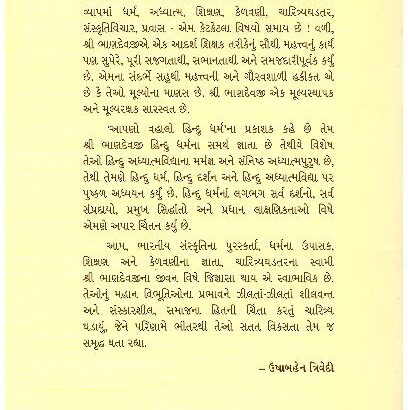 વ્યાપમાં ધર્મ, અધ્યાત્મ, શિક્ષણ, કેળવણી, ચારિત્ર્યઘડતર,
સંસ્કૃતિવિચાર, પ્રવાસ - એમ કેટકેટલા વિષયો સમાય છે ! વળી,
શ્રી ભાણદેવજીએ એક આદર્શ શિક્ષક તરીકેનું સૌથી મહત્ત્વનું કાર્ય
પણ સુપેરે, પૂરી સજગતાથી, સભાનતાથી અને સમજદારીપૂર્વક કર્યું
છે. એમના સંદર્ભે સહુથી મહત્ત્વની અને ગૌરવશાળી હકીકત એ
છે કે તેઓ મૂલ્યોના માણસ છે. શ્રી ભાણદેવજી એક મૂલ્યસ્થાપક
અને મૂલ્યરક્ષક સારસ્વત છે.
'આપણો વહાલો હિન્દુ ધર્મ'ના પ્રકાશક કહે છે તેમ
શ્રી ભાણદેવજી હિન્દુ ધર્મના સમર્થ જ્ઞાતા છે તેથીયે વિશેષ
તેઓ હિન્દુ અધ્યાત્મવિદ્યાના મર્મજ્ઞ અને સંનિષ્ઠ અધ્યાત્મપુરુષ છે,
તેથી તેમણે હિન્દુ ધર્મ, હિન્દુ દર્શન અને હિન્દુ અધ્યાત્મવિદ્યા પર
પુષ્કળ અધ્યયન કર્યું છે. હિન્દુ ધર્મના લગભગ સર્વ દર્શનો, સર્વ
સંપ્રદાયો, પ્રમુખ સિદ્ધાંતો અને પ્રધાન લાક્ષણિકતાઓ વિષે
એમણે અપાર ચિંતન કર્યું છે.
આમ, ભારતીય સંસ્કૃતિના પુરસ્કર્તા, ધર્મના ઉપાસક,
શિક્ષણ અને કેળવણીના જ્ઞાતા, ચારિત્ર્યઘડતરના સ્વામી
શ્રી ભાણદેવજીના જીવન વિષે જિજ્ઞાસા થાય એ સ્વાભાવિક છે.
તેઓનું મહાન વિભૂતિઓના પ્રભાવને ઝીલતાં-ઝીલતાં શીલવન્ત
અને સંસ્કારશીલ, સમાજના હિતની ચિંતા કરતું ચારિત્ર્ય
ઘડાયું, જેને પરિણામે ભીતરથી તેઓ સતત વિકસતા તેમ જ
સમૃદ્ધ થતા રહ્યા.
– ઉષાબહેન ત્રિવેદી